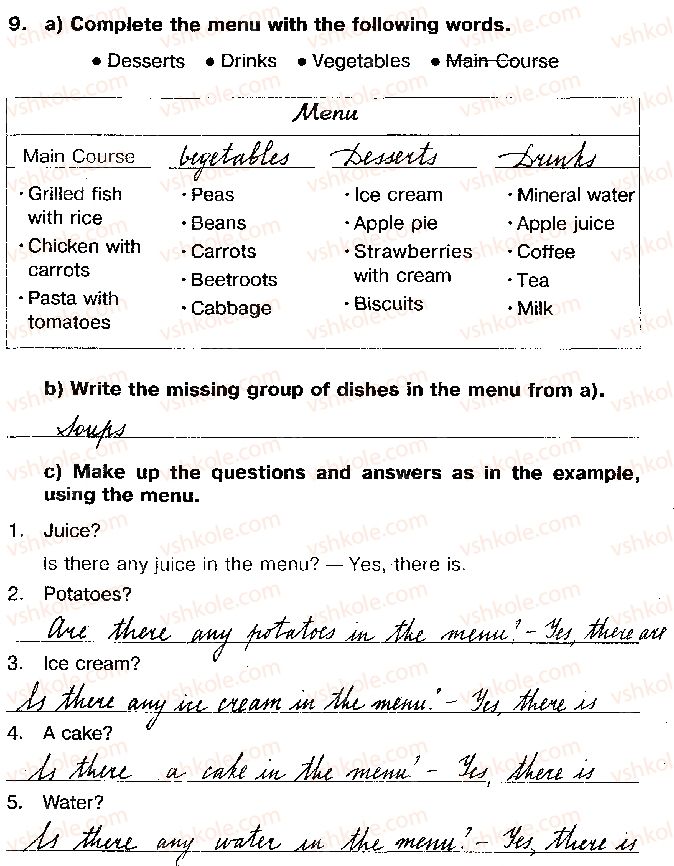 9. a) Complete the menu with the following words.
• Desserts • Drinks • Vegetables • Main Course
Menu
Main Course Vegetables Desserts Drinks
· Grilled fish with rice
· Chicken with carrots
· Pasta with tomatoes
· Peas
· Beans
· Carrots
· Beetroots
· Cabbage
· Ice cream
· Apple pie
· Strawberries with cream
· Biscuits
· Mineral water
· Apple juice
· Coffee
· Tea
· Milk
b) Write the missing group of dishes in the menu from a).
Soups
c) Make up the questions and answers as in the example,
using the menu.
1. Juice?
Is there any juice in the menu? — Yes, there is.
2. Potatoes?
Are there any potatoes in the menu? - Yes, there are
3. Ice cream?
Is there any ice cream in the menu? - Yes, there is
4. A cake?
Is there a cake in the menu? - Yes, there is
5. Water?
Is there any water in the menu? - Yes, there is
vshkole.com